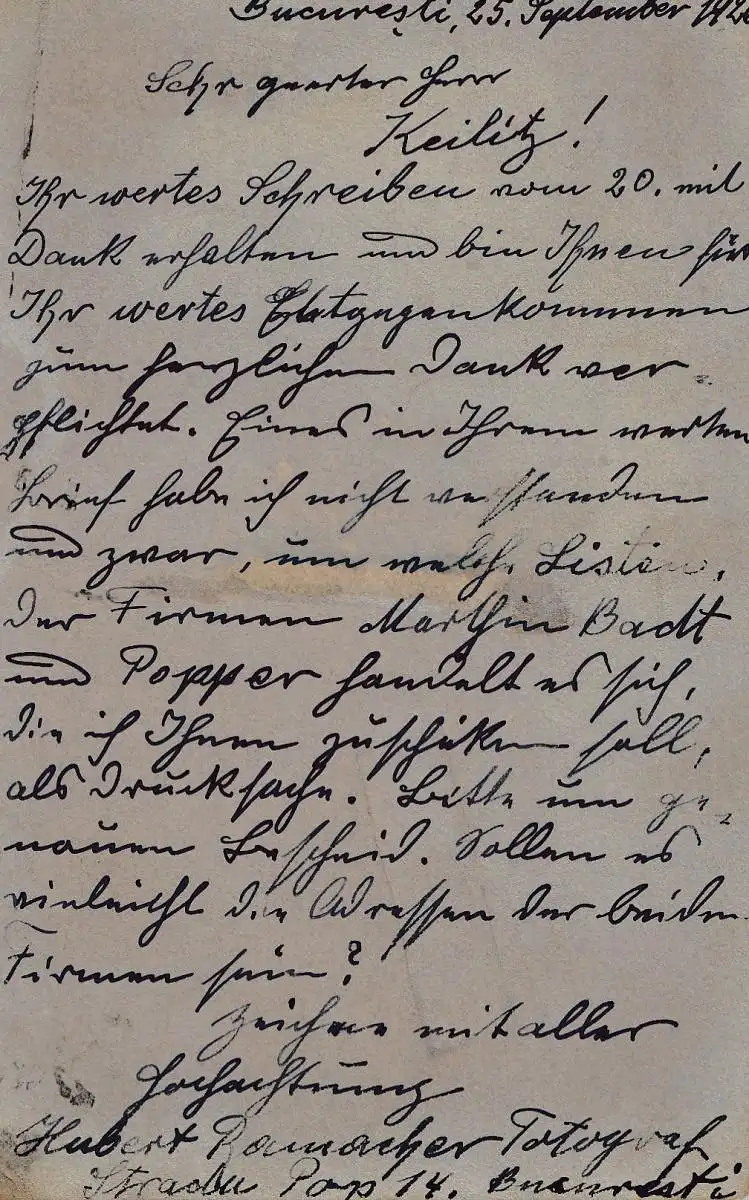 Bucureşti, 25. September 192
Sehr geerter Herr
Keilitz!
Ihr wertes Schreiben vom 20. mit
Dank erhalten und bin Ihnen für
Ihr wertes Entgegenkommen
zum herzlichen Dank ver-
pflichtet. Eines in Ihrem werten
Brief habe ich nicht verstanden
und zwar, um welche Listen,
der Firmen Marthin Badt
und Popper handelt es sich,
die ich Ihnen zuschiken soll,
als Drucksache. Bitte um ge-
nauen Bescheid. Sollen es
vieleicht die Adressen der beiden
Firmen sein?
Zeichne mit aller
Hochachtung
Hubert Ramacher Fotograf
Strada Pop 14. Bucureşti